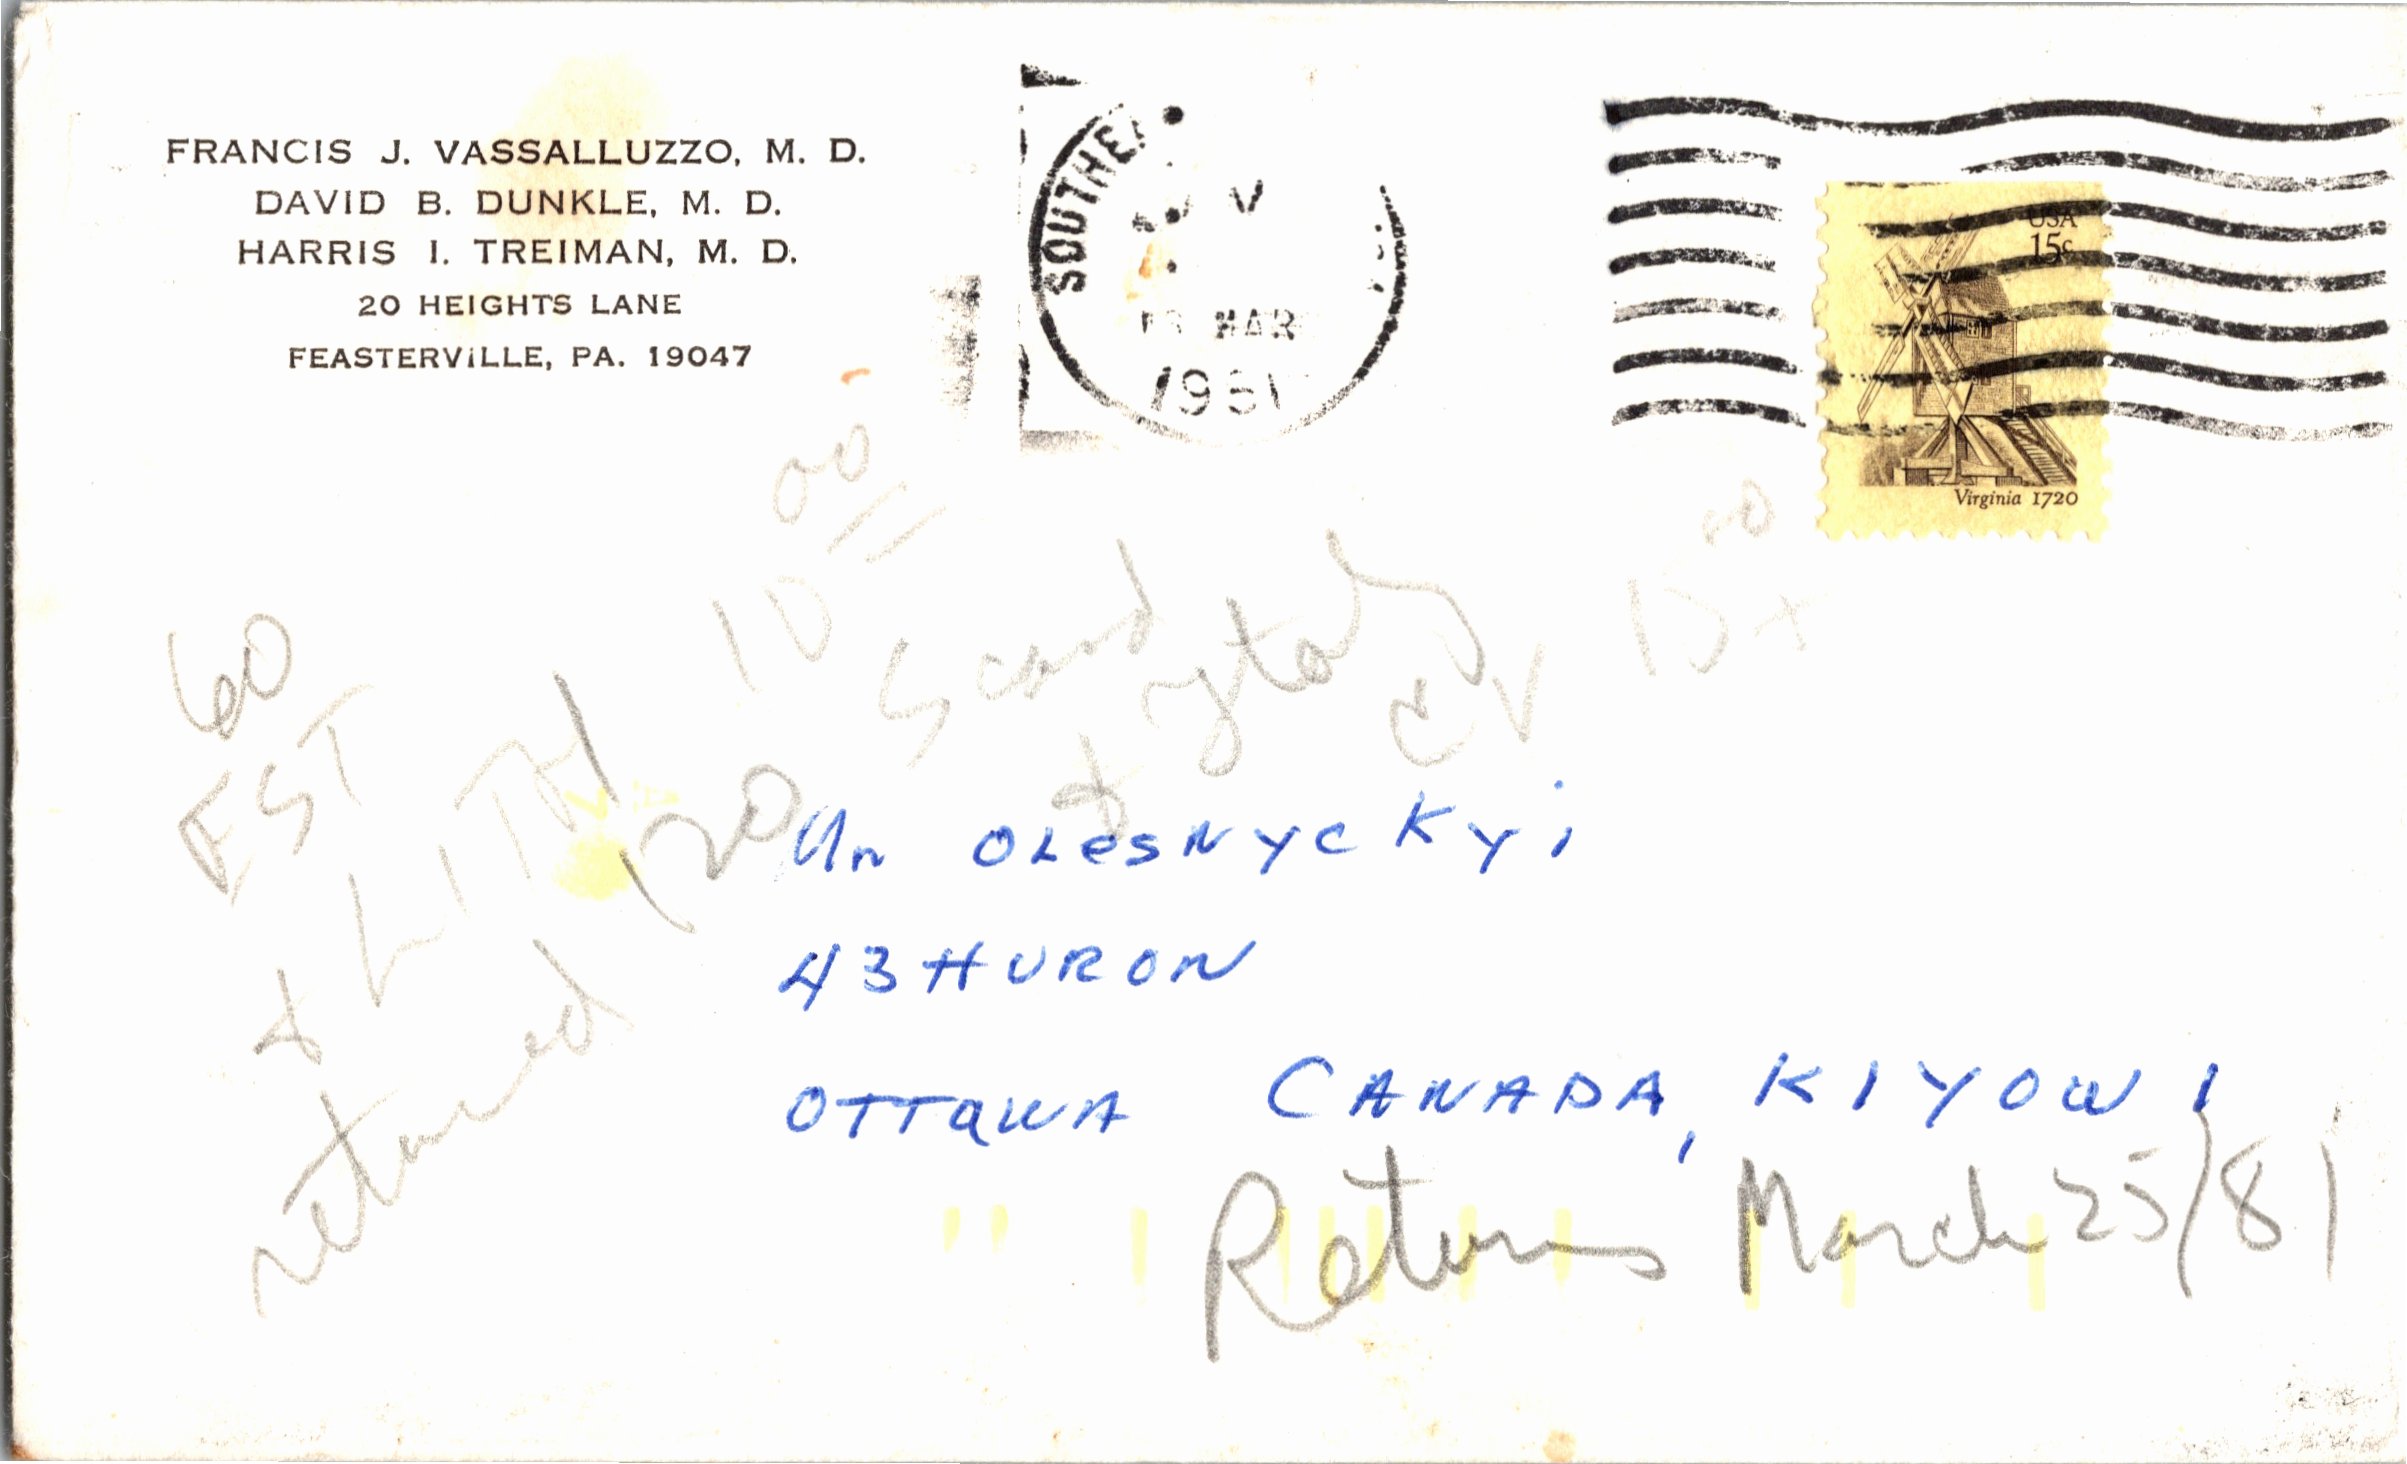 FRANCIS J. VASSALLUZZO, M. D.
DAVID B. DUNKLE, M. D.
HARRIS I. TREIMAN, M. D.
20 HEIGHTS LANE
FEASTERVILLE, PA. 19047
SOUTHEA
MAR
1981
USA
15c
Virginia 1720
60
EST
& LITH
returned
10 00
120
Scand
&
CV 15 00
Mr OLesNycKyi
43 HURON
OTTaWA CANADA, K1Y0W1
Returns March 25/81